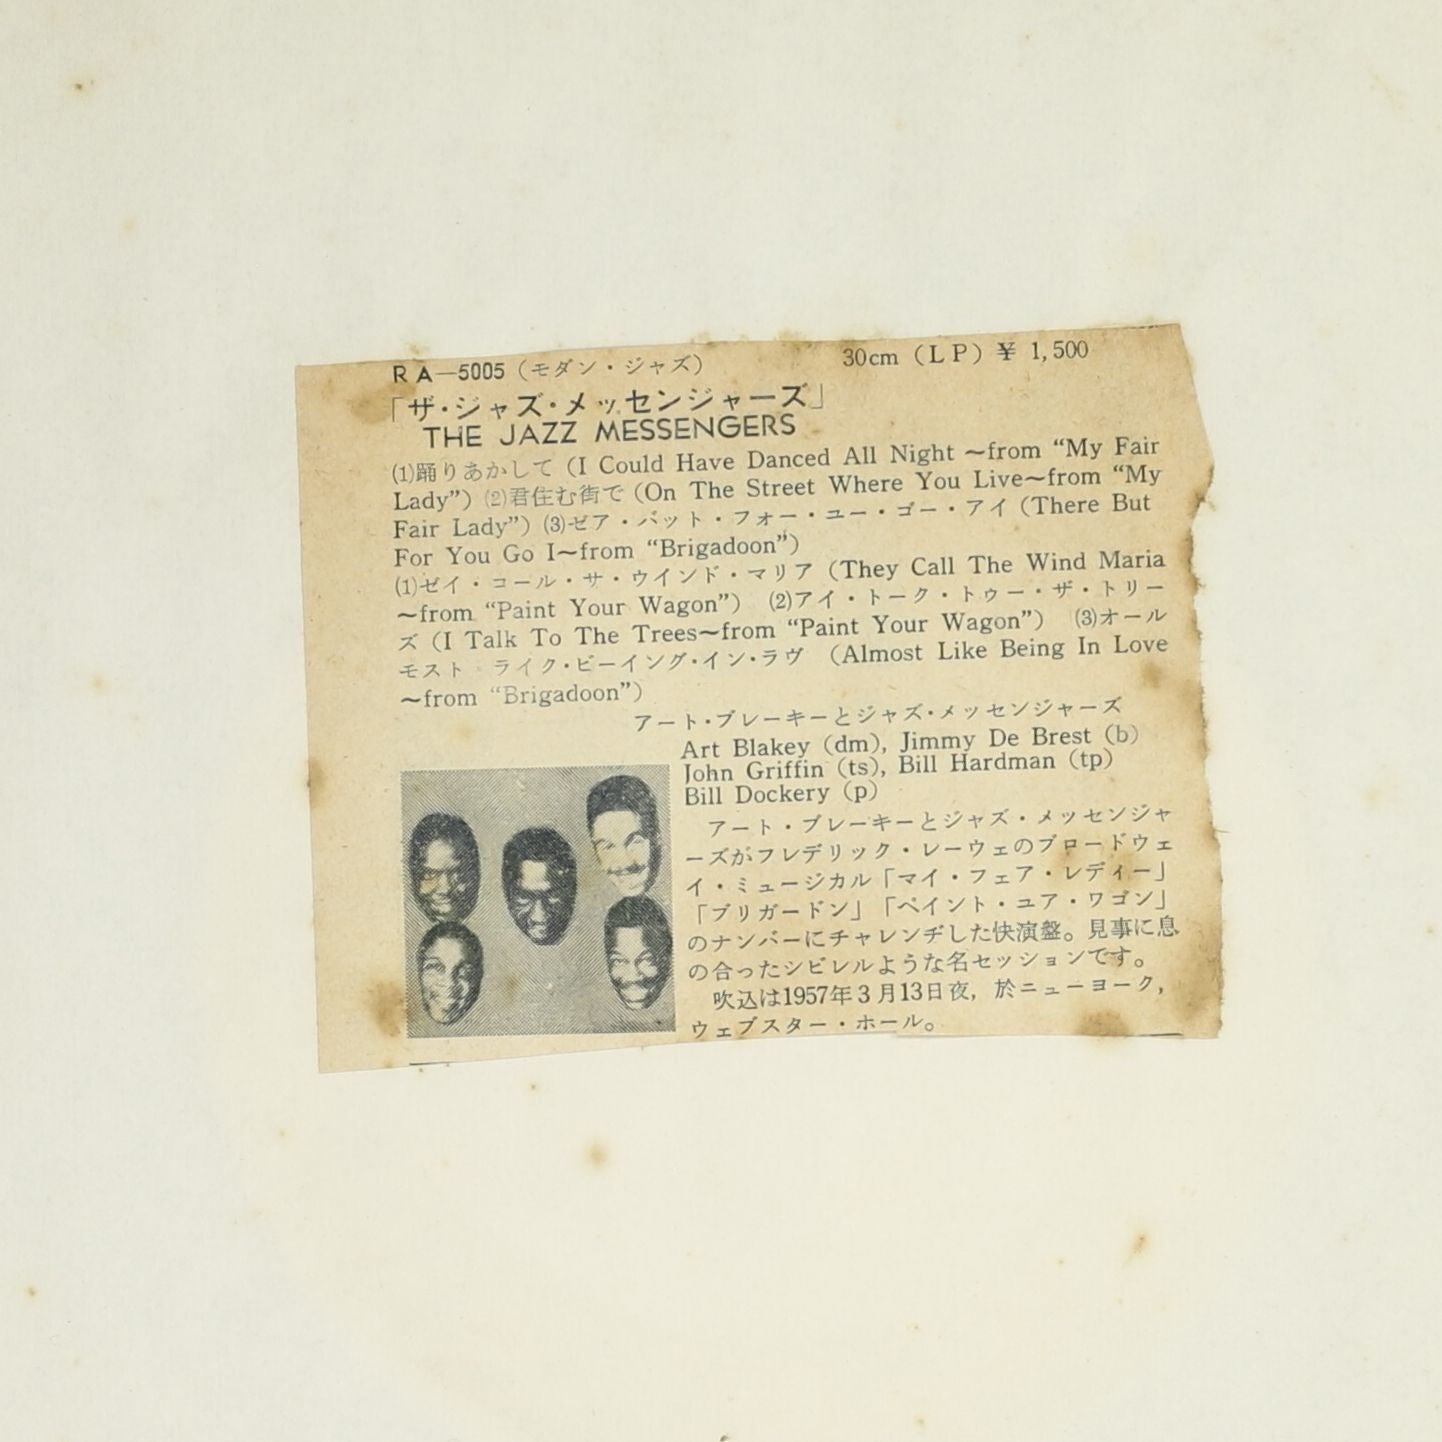 RA—5005（モダン・ジャズ） 30cm（LP）¥ 1,500
「ザ・ジャズ・メッセンジャーズ」
THE JAZZ MESSENGERS
⑴踊りあかして（I Could Have Danced All Night ~from “My Fair
Lady”）⑵君住む街で（On The Street Where You Live~from “My
Fair Lady”）⑶ゼア・バット・フォー・ユー・ゴー・アイ（There But
For You Go I~from “Brigadoon”）
⑴ゼイ・コール・サ・ウインド・マリア（They Call The Wind Maria
~from “Paint Your Wagon”） ⑵アイ・トーク・トゥー・ザ・トリー
ズ（I Talk To The Trees~from “Paint Your Wagon”） ⑶オール
モスト ライク・ビーイング・イン・ラヴ （Almost Like Being In Love
~from “Brigadoon”）
アート・ブレーキーとジャズ・メッセンジャーズ
Art Blakey（dm）, Jimmy De Brest（b）
John Griffin（ts）, Bill Hardman（tp）
Bill Dockery（p）
アート・ブレーキーとジャズ・メッセンジャ
ーズがフレデリック・レーウェのブロードウェ
イ・ミュージカル「マイ・フェア・レディー」
「ブリガードン」「ペイント・ユア・ワゴン」
のナンバーにチャレンヂした快演盤。見事に息
の合ったシビレルような名セッションです。
吹込は1957年3月13日夜，於ニューヨーク，
ウェブスター・ホール。